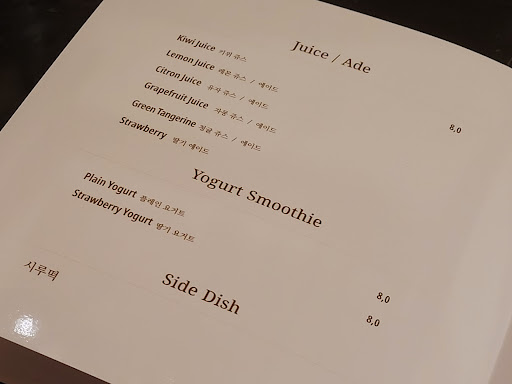 Juice / Ade
Kiwi Juice 키위 쥬스
Lemon Juice 레몬 쥬스 / 에이드
Citron Juice 유자 쥬스 / 에이드
Grapefruit Juice 자몽 쥬스 / 에이드
Green Tangerine 청귤 쥬스 / 에이드
Strawberry 딸기 에이드
8,0
Yogurt Smoothie
Plain Yogurt 플레인 요거트
Strawberry Yogurt 딸기 요거트
8,0
8,0
Side Dish
시루떡